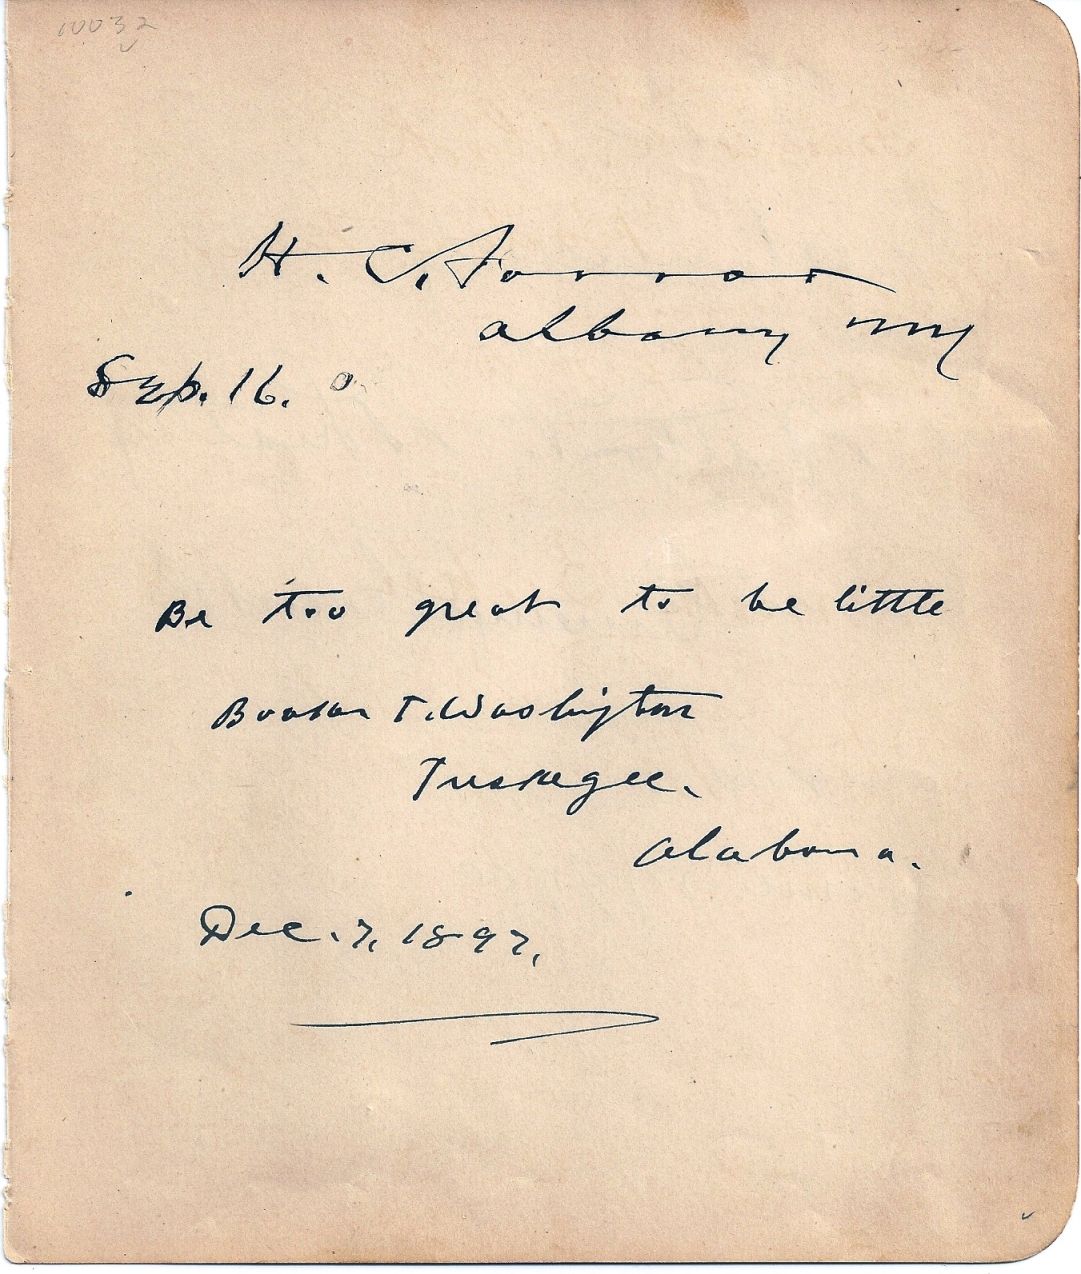 10032
H. C. Farrar
Albany NY
Sep. 16.
Be too great to be little
Booker T. Washington
Tuskegee.
Alabama.
Dec. 7, 1897.